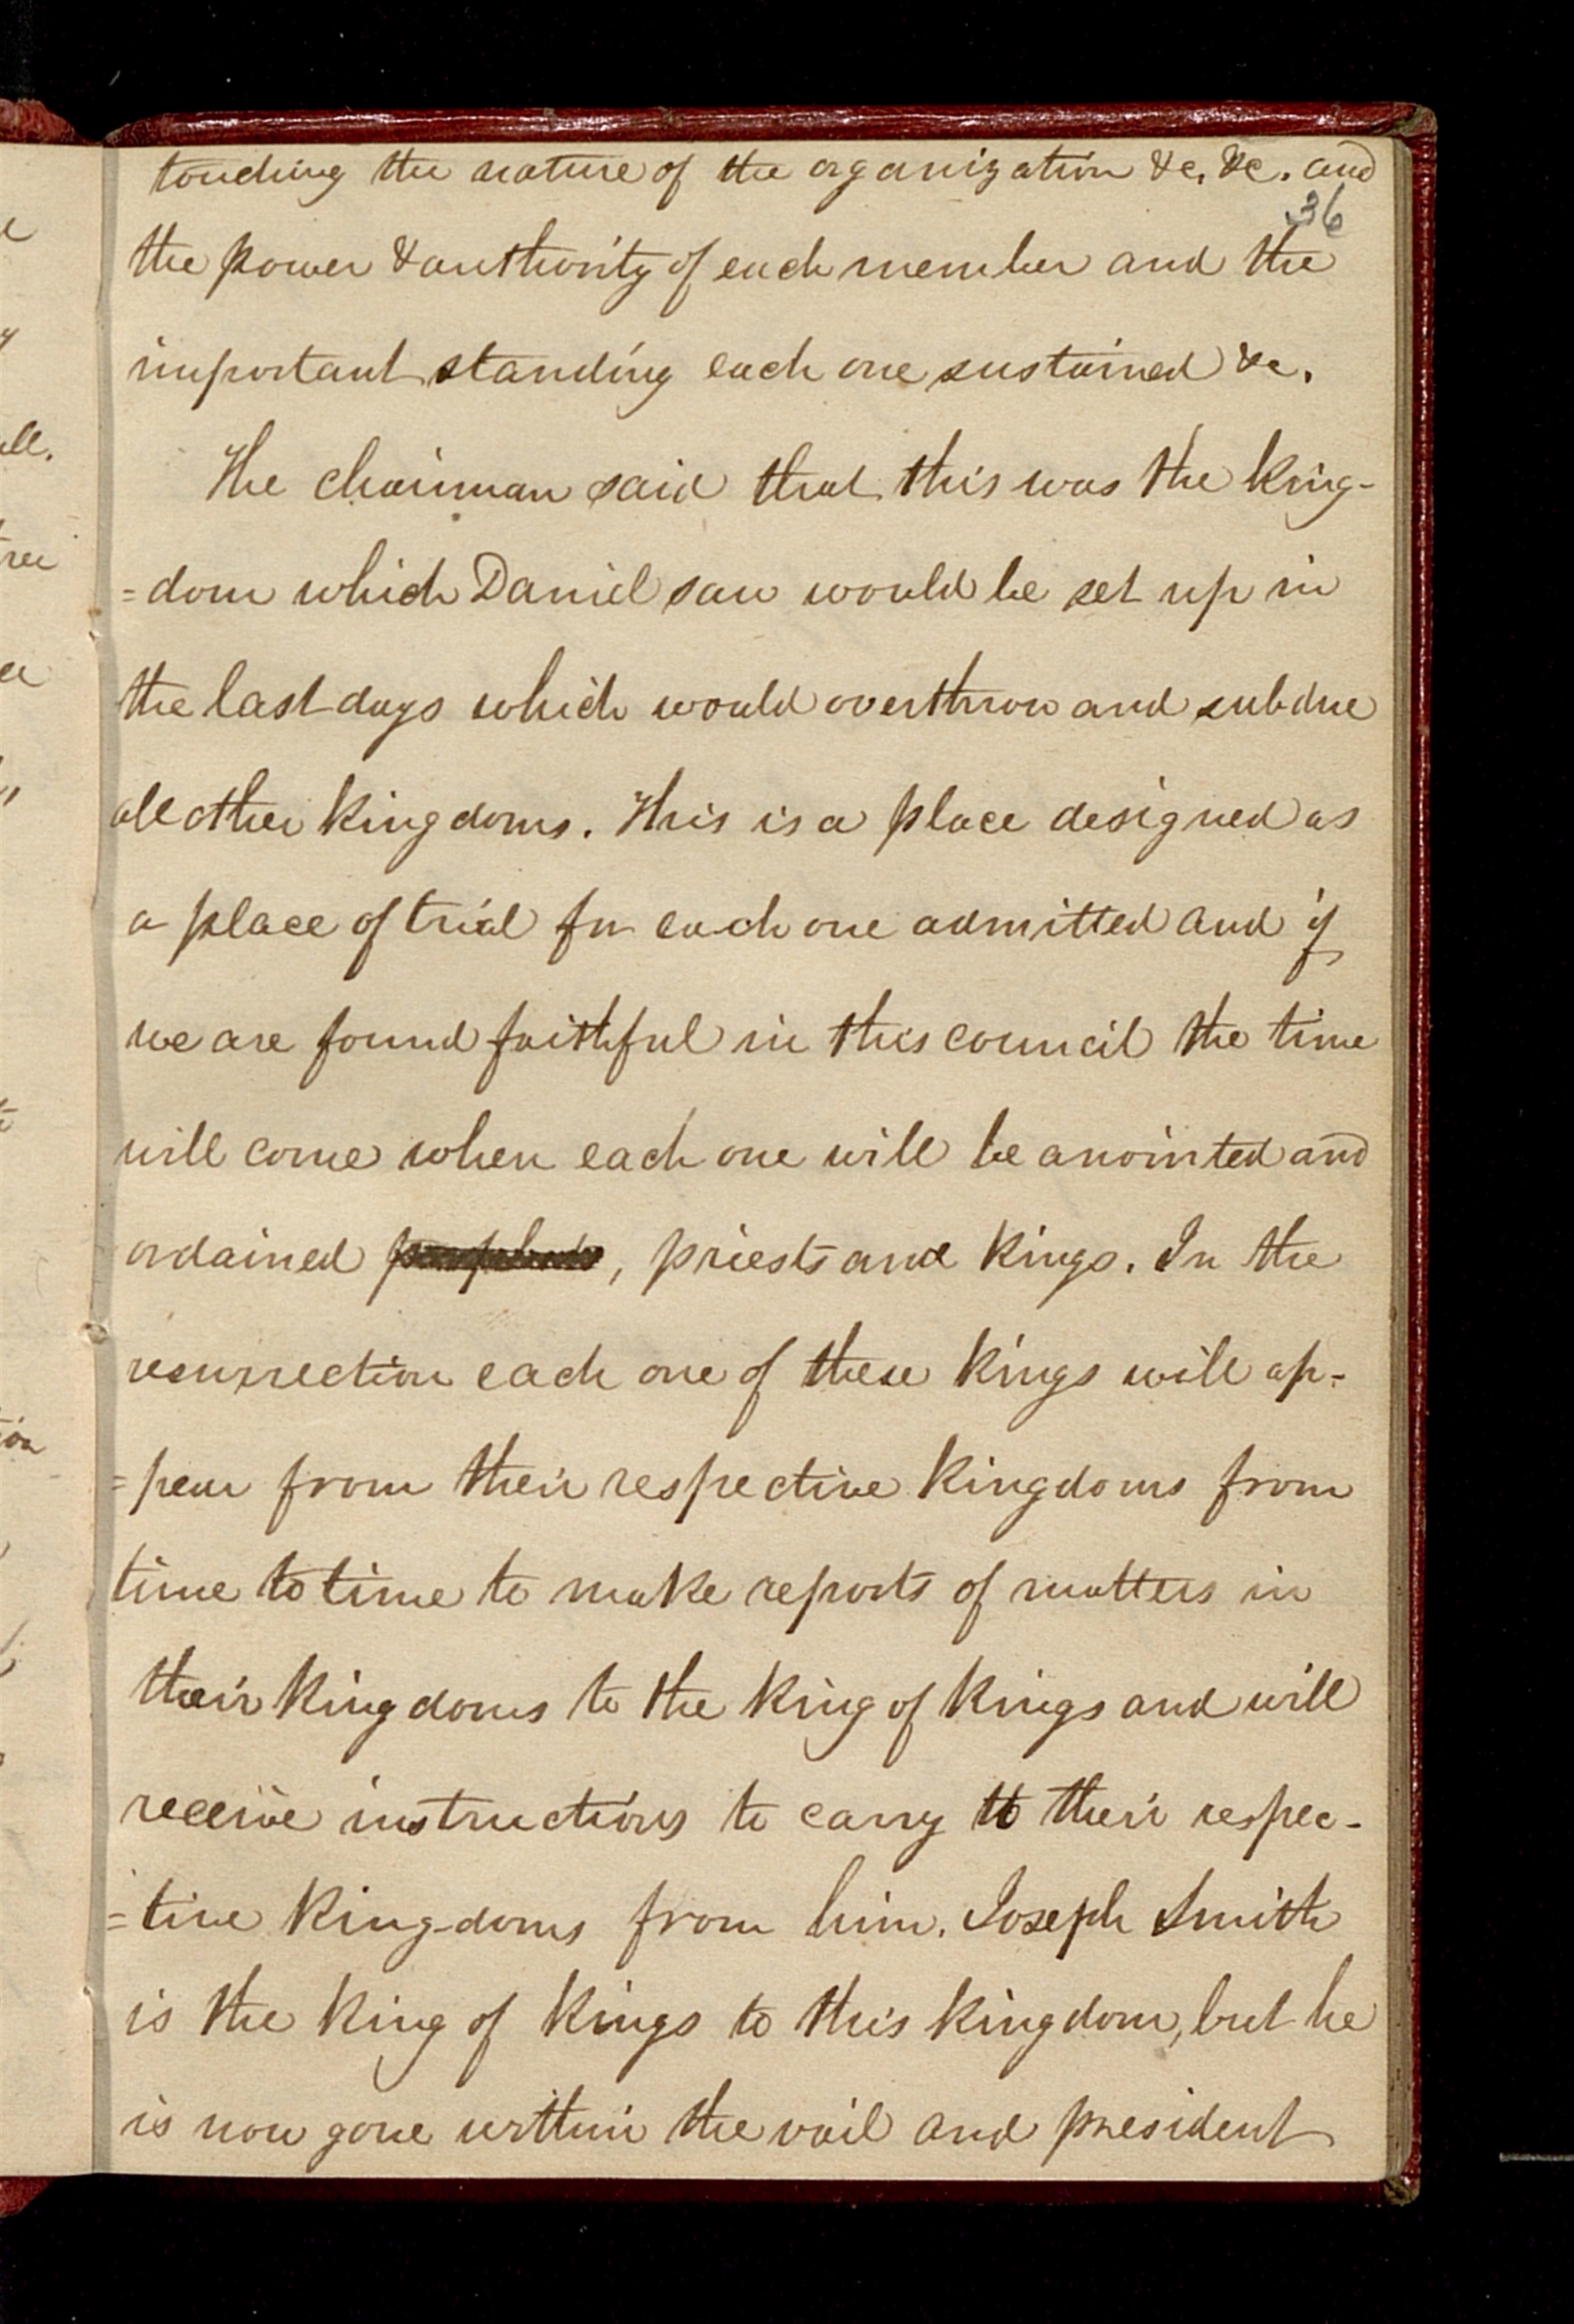 touching the nature of the organization &c, &c. and
36
the power & authority of each member and the
important standing each one sustained &c.
The chairman said that this was the king-
=dom which Daniel saw would be set up in
the last days which would overthrow and subdue
all other kingdoms. This is a place designed as
a place of trial for each one admitted and if
we are found faithful in this council the time
will come when each one will be anointed and
ordained , priests and kings. In the
resurrection each one of these kings will ap-
=pear from their respective kingdoms from
time to time to make reports of matters in
their kingdoms to the king of kings and will
receive instructions to carry to their respec-
=tive kingdoms from him. Joseph Smith
is the king of kings to this kingdom, but he
is now gone within the vail and president